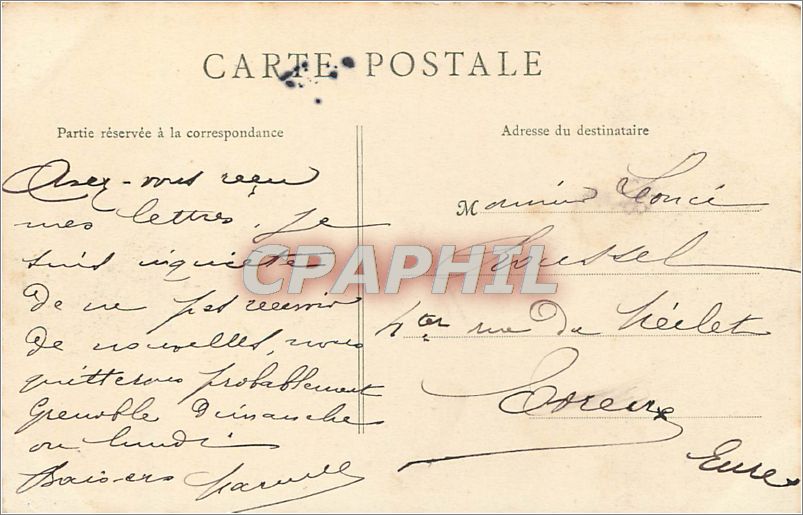 CARTE POSTALE
Partie réservée à la correspondance
Avez-vous reçu
mes lettres, je
suis inquiète
de ne pas recevoir
de nouvelles, nous
quitterons probablement
Grenoble Dimanche
ou lundi
Baisers
Adresse du destinataire
Monsieur Léonce
Roussel
rue du
Evreux
Eure
CPAPHIL